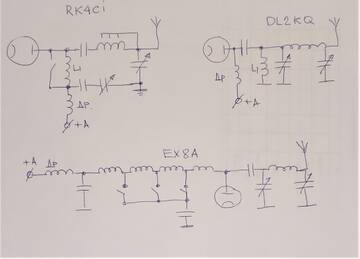 RK4Ci
DL2KQ
L1
Др
+A
L1
Др
+A
EX8A
+A Др